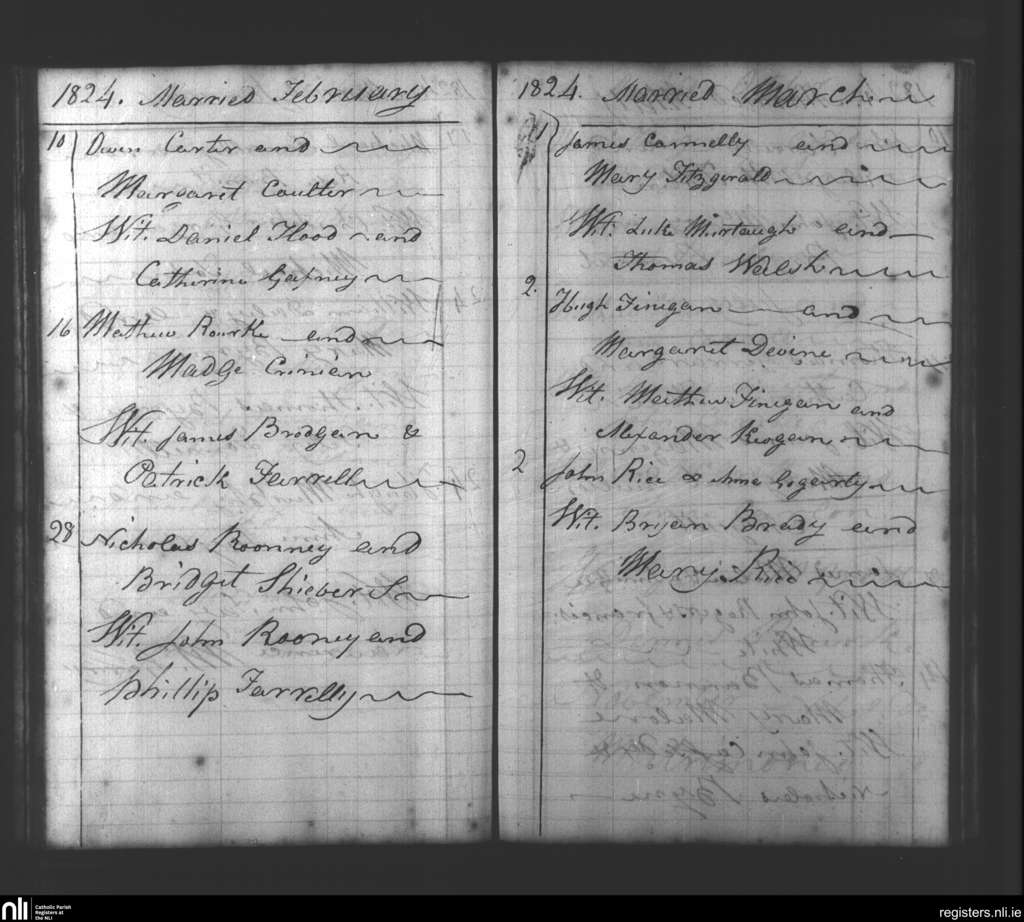 1824. Married February
10 Owen Carter and
Margaret Coulter
Wit. Daniel Hood and
Catherine Gafney
16 Mathew Rourke and
Madge Crinian
Wit. James Brodgan &
Patrick Farrell
28 Nicholas Roonney and
Bridget Shieber S
Wit. John Rooney and
Phillip Farrelly
1824. Married March
1 James Connelly and
Mary Fitzgerald
Wit. Luke Murtaugh and
Thomas Walsh
2. Hugh Finigan and
Margaret Devine
Wit. Matthew Finigan and
Alexander Keogan
2 John Rice & Anne Gogarty
Wit. Bryan Brady and
Mary Rice
nli Catholic Parish
Registers at
the NLI
registers.nli.ie